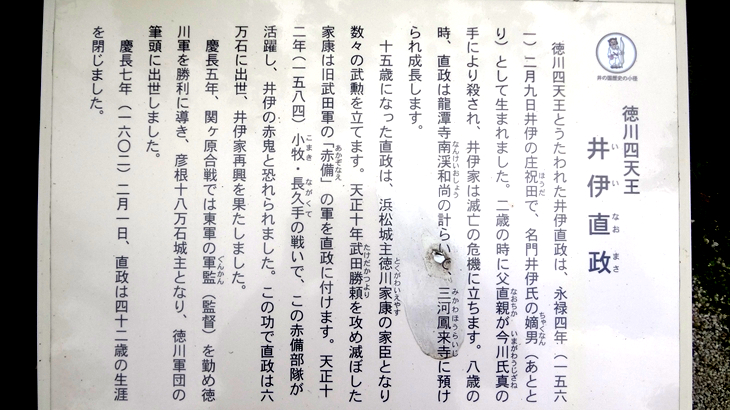 井の国歴史の小径
徳川四天王
井伊直政
いいなおまさ
徳川四天王とうたわれた井伊直政は、永禄四年（一五六
一）二月九日井伊の庄祝田で、名門井伊氏の嫡男（あとと
ほうだ
ちゃくなん
り）として生まれました。二歳の時に父直親が今川氏真の
なおちか
いまがわうじざね
手により殺され、井伊家は滅亡の危機に立ちます。八歳の
時、直政は龍潭寺南渓和尚の計らいで、三河鳳来寺に預け
なんけいおしょう
みかわほうらいじ
られ成長します。
十五歳になった直政は、浜松城主徳川家康の家臣となり
とくがわいえやす
数々の武勲を立てます。天正十年武田勝頼を攻め滅ぼした
たけだかつより
家康は旧武田軍の「赤備」の軍を直政に付けます。天正十
あかぞなえ
二年（一五八四）小牧・長久手の戦いで、この赤備部隊が
こまき
ながくて
活躍し、井伊の赤鬼と恐れられました。この功で直政は六
万石に出世、井伊家再興を果たしました。
慶長五年、関ヶ原合戦では東軍の軍監（監督）を勤め徳
ぐんかん
川軍を勝利に導き、彦根十八万石城主となり、徳川軍団の
筆頭に出世しました。
慶長七年（一六〇二）二月一日、直政は四十二歳の生涯
を閉じました。